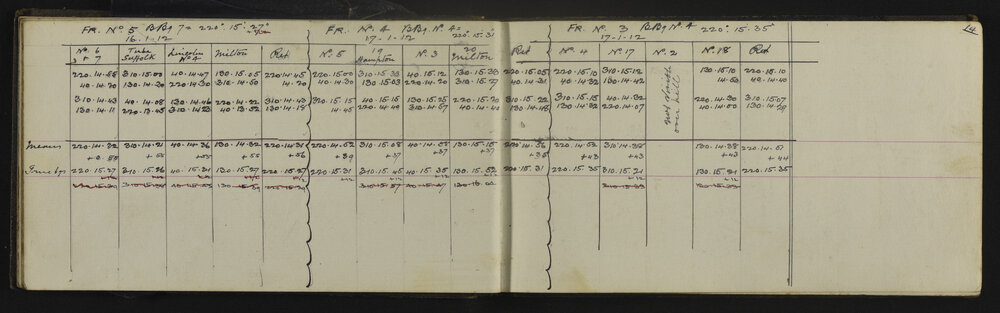 14
FR. No 5 BBq 7 = 220° 15' 27"
16.1.12
No 6 + 7 | Tube Suffolk | Lincoln No 4 | Milton | Ret
220.14.58 310.15.00 40.14.47 130.15.05 220.14.45
40.14.20 130.14.20 220.14.30 310.14.50 14.20
310.14.43 40.14.08 130.14.46 220.14.22 310.14.43
130.14.11 220.13.45 310.14.23 40.13.52 130.14.18
Means 220.14.32 310.14.21 40.14.36 130.14.32 220.14.31
+0.55 +55 +55 +55 +56
True bgs 220.15.27 310.15.26 40.15.31 130.15.27 220.15.27
FR. No. 4 BBq No 4 = 220° 15' 31"
17-1-12
No 5 | 19 Hampton | No 3 | 20 Milton | Ret
220.15.00 310.15.33 40.15.12 130.15.33 220.15.05
40.14.30 130.15.03 220.14.20 310.15.27 40.14.31
310.15.15 40.15.15 130.15.25 220.15.20 310.15.22
14.45 220.14.40 310.14.57 40.14.40 130.14.48
220.14.52 310.15.08 40.14.58 130.15.15 220.14.56
+39 +37 +37 +37 +35
220.15.31 310.15.45 40.15.35 130.15.52 220.15.31
+12 +12 +12 +12
FR. No 3 BBq No 4 220° 15' 35"
17-1-12
No 4 | No 17 | No 2 | No 18 | Ret
220.15.10 310.15.12 130.15.10 220.15.10
40.14.32 130.14.42 14.50 40.14.40
310.15.15 40.14.32 220.14.30 310.15.07
130.14.32 220.14.07 40.14.00 130.14.29
not visible over hill
220.14.52 310.14.38 130.14.38 220.14.51
+43 +43 +43 +44
220.15.35 310.15.21 130.15.21 220.15.35
+12 +12